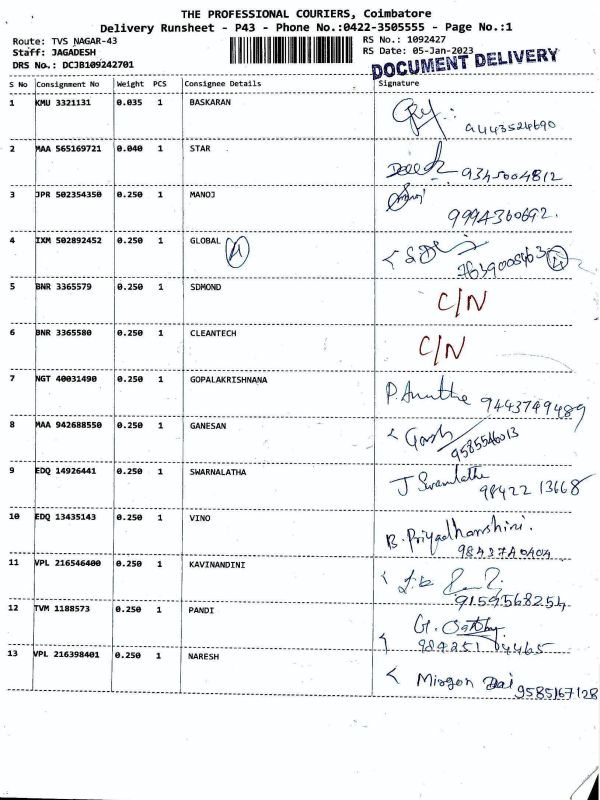 THE PROFESSIONAL COURIERS, Coimbatore
Delivery Runsheet - P43 - Phone No.:0422-3505555 - Page No.:1
Route: TVS NAGAR-43 RS No.: 1092427
Staff: JAGADESH RS Date: 05-Jan-2023
DRS No.: DCJB109242701 DOCUMENT DELIVERY
S No Consignment No Weight PCS Consignee Details Signature
1 KMU 3321131 0.035 1 BASKARAN
9443524690
2 MAA 565169721 0.040 1 STAR
9345004812
3 JPR 502354350 0.250 1 MANOJ
9994360692.
4 IXM 502892452 0.250 1 GLOBAL
7639005463
5 BNR 3365579 0.250 1 SDMOND C/N
6 BNR 3365580 0.250 1 CLEANTECH C/N
7 NGT 40031490 0.250 1 GOPALAKRISHNANA
9443749489
8 MAA 942688550 0.250 1 GANESAN
9585546013
9 EDQ 14926441 0.250 1 SWARNALATHA J Swarnlatha
98422 13668
10 EDQ 13435143 0.250 1 VINO B. Priyadharshini.
9843740404
11 VPL 216546400 0.250 1 KAVINANDINI
9159568254
12 TVM 1188573 0.250 1 PANDI
984251 04465
13 VPL 216398401 0.250 1 NARESH
9585167128